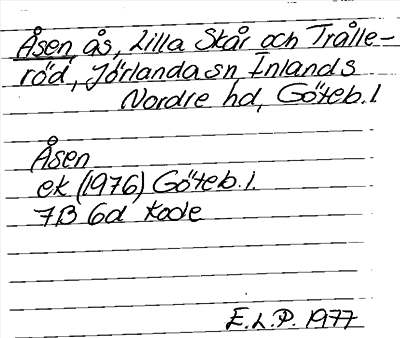 Åsen, ås, Lilla Skår och Trålle-
röd, Jörlanda sn Inlands
Nordre hd, Göteb. l.
Åsen
ek (1976) Göteb. l.
7B 6d Kode
E.L.P. 1977